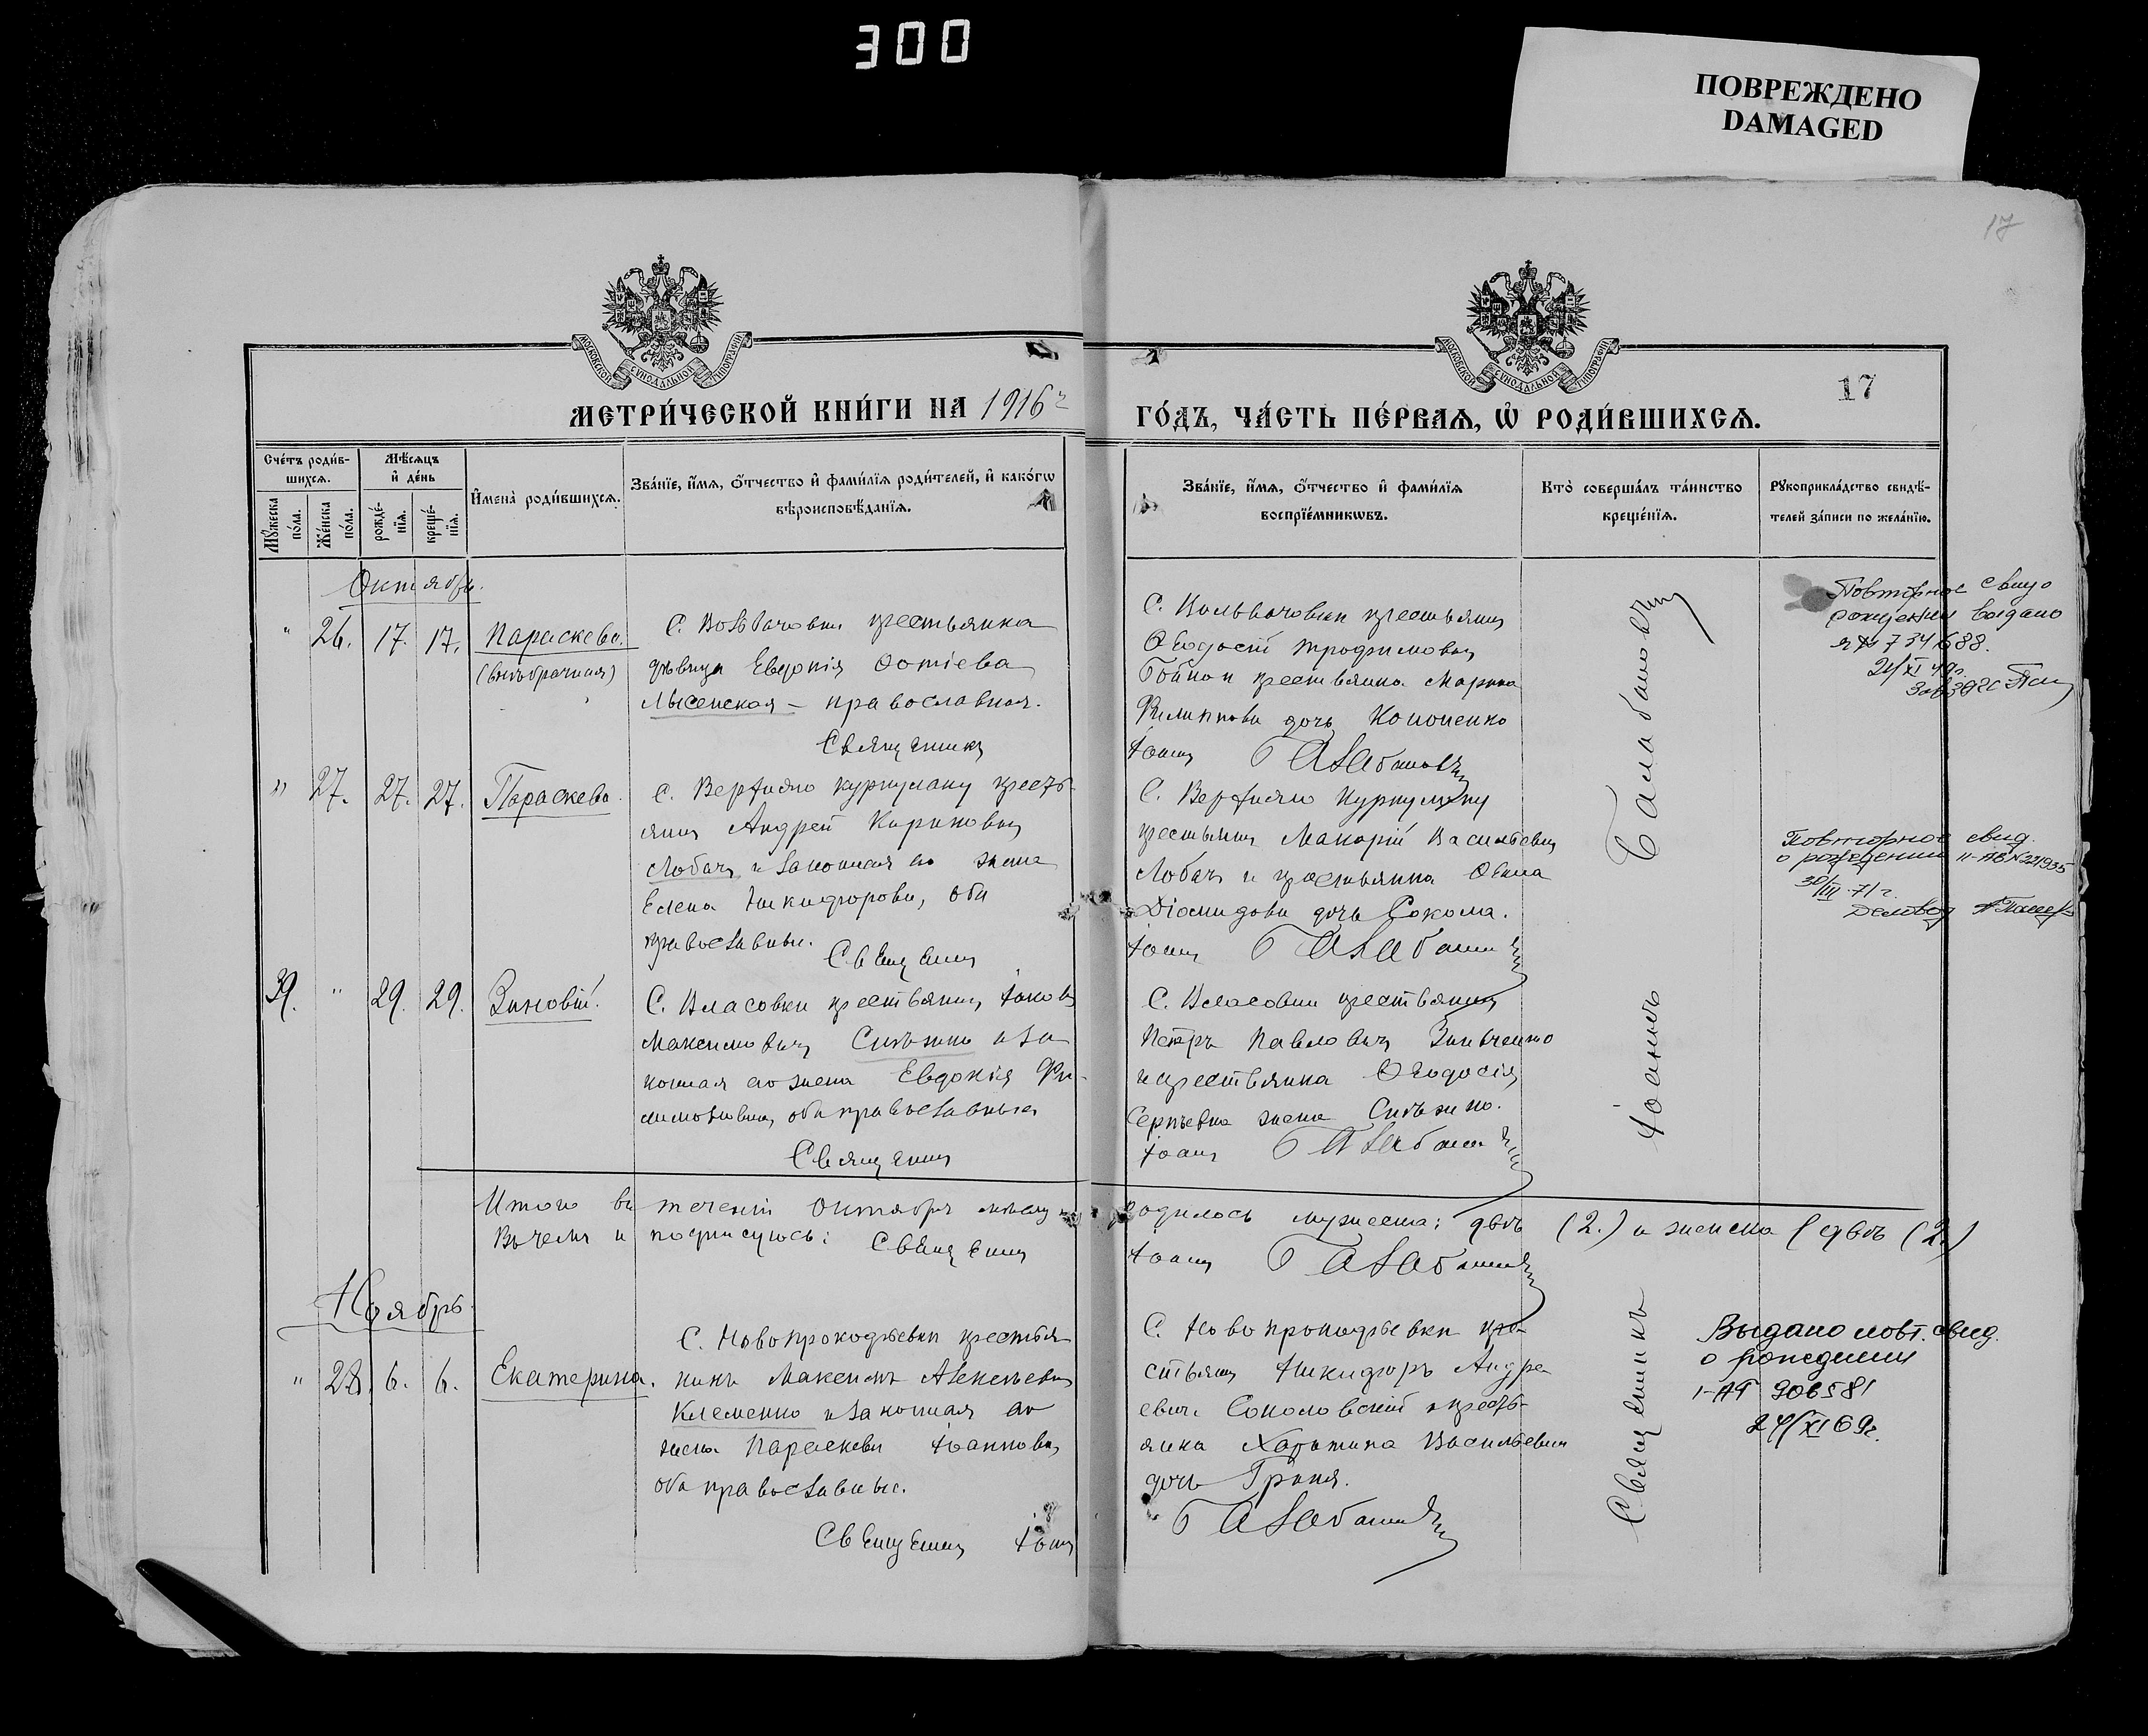 300
ПОВРЕЖДЕНО
DAMAGED
17
МОСКОВСКОЙ СѴНОДАЛЬНОЙ ТИПОГРАФІИ
МОСКОВСКОЙ СѴНОДАЛЬНОЙ ТИПОГРАФІИ
17
МЕТРИ́ЧЕСКОЙ КНИ́ГИ НА 1916 г
ГО́ДЪ, ЧА́СТЬ ПЕ́РВАѦ, Ѡ҆ РОДИ́ВШИХСѦ.
Сче́тъ роди́в-
шихсѧ.
Мꙋ́жеска по́ла.
Же́нска по́ла.
Мѣ́сѧцъ
и҆ де́нь
рожде́-
нїѧ.
креще́-
нїѧ.
И҆мена̀ роди́вшихсѧ.
Зва́нїе, и҆́мѧ, ѻ҆́тчество и҆ фамѝлїѧ роди́телей, и҆ како́гѡ
вѣроисповѣ́данїѧ.
Зва́нїе, и҆́мѧ, ѻ҆́тчество и҆ фамѝлїѧ
воспрїе́мникѡвъ.
Кто̀ соверша́лъ та́инство
креще́нїѧ.
Рꙋкоприкла́дство свидѣ́-
телей за́писи по жела́нїю.
Октябрь.
" 26. 17. 17. Параскева.
(внебрачная)
крестьянка
дѣвица Евдокія Фотіева
Лысенская - православная.
Священникъ
С. крестьянинъ
Ѳеодосій Трофимовъ
и крестьянка Марина
Филиппова дочь Кононенко
Іоаннъ Балабановичъ
Повторное свид о
рождении выдано
734688.
21/XI 49г.
" 27. 27. 27. Параскева.
С. кресть-
янинъ Андрей
Лобачъ и законная его жена
Елена Никифорова, оба
православные.
Священникъ
С.
крестьянинъ Макарій Васильевъ
Лобачъ и крестьянка
Діомидова дочь Сокола.
Іоаннъ Балабановичъ
Повторное свид.
о рождении II-АВ №321935
30/III-71 г.
39. " 29. 29. Зиновій.
С. Власовки крестьянинъ Іаковъ
Максимовичъ и за
конная его жена Евдокія Фи-
лимоновна, оба православные
Священникъ
С. Власовки крестьянинъ
Петръ Павловичъ Зинченко
и крестьянка Ѳеодосія
Сергѣевна жена
Іоаннъ Балабановичъ
Итого въ теченіи Октября мѣсяца родилось мужеска: двѣ (2.) и женска (двѣ (2.)
Въ чемъ и подписуюсь: Священникъ Іоаннъ Балабановичъ
Ноябрь
" 28. 6. 6. Екатерина.
С. Новопрокофьевки крестья
нинъ Максимъ Алексѣевъ
Клеменко и законная его
жена Параскева Іоаннова,
оба православные.
Священникъ Іоаннъ
С. Новопрокофьевки кре-
стьянинъ Никифоръ Андре
евичъ Соколовскій и кресть-
янка Харитина Васильевна
дочь
Балабановичъ
Священникъ Іоаннъ Балабановичъ
Выдано повт. свид.
о рождении
I-АП 906581
24/XI 69г.